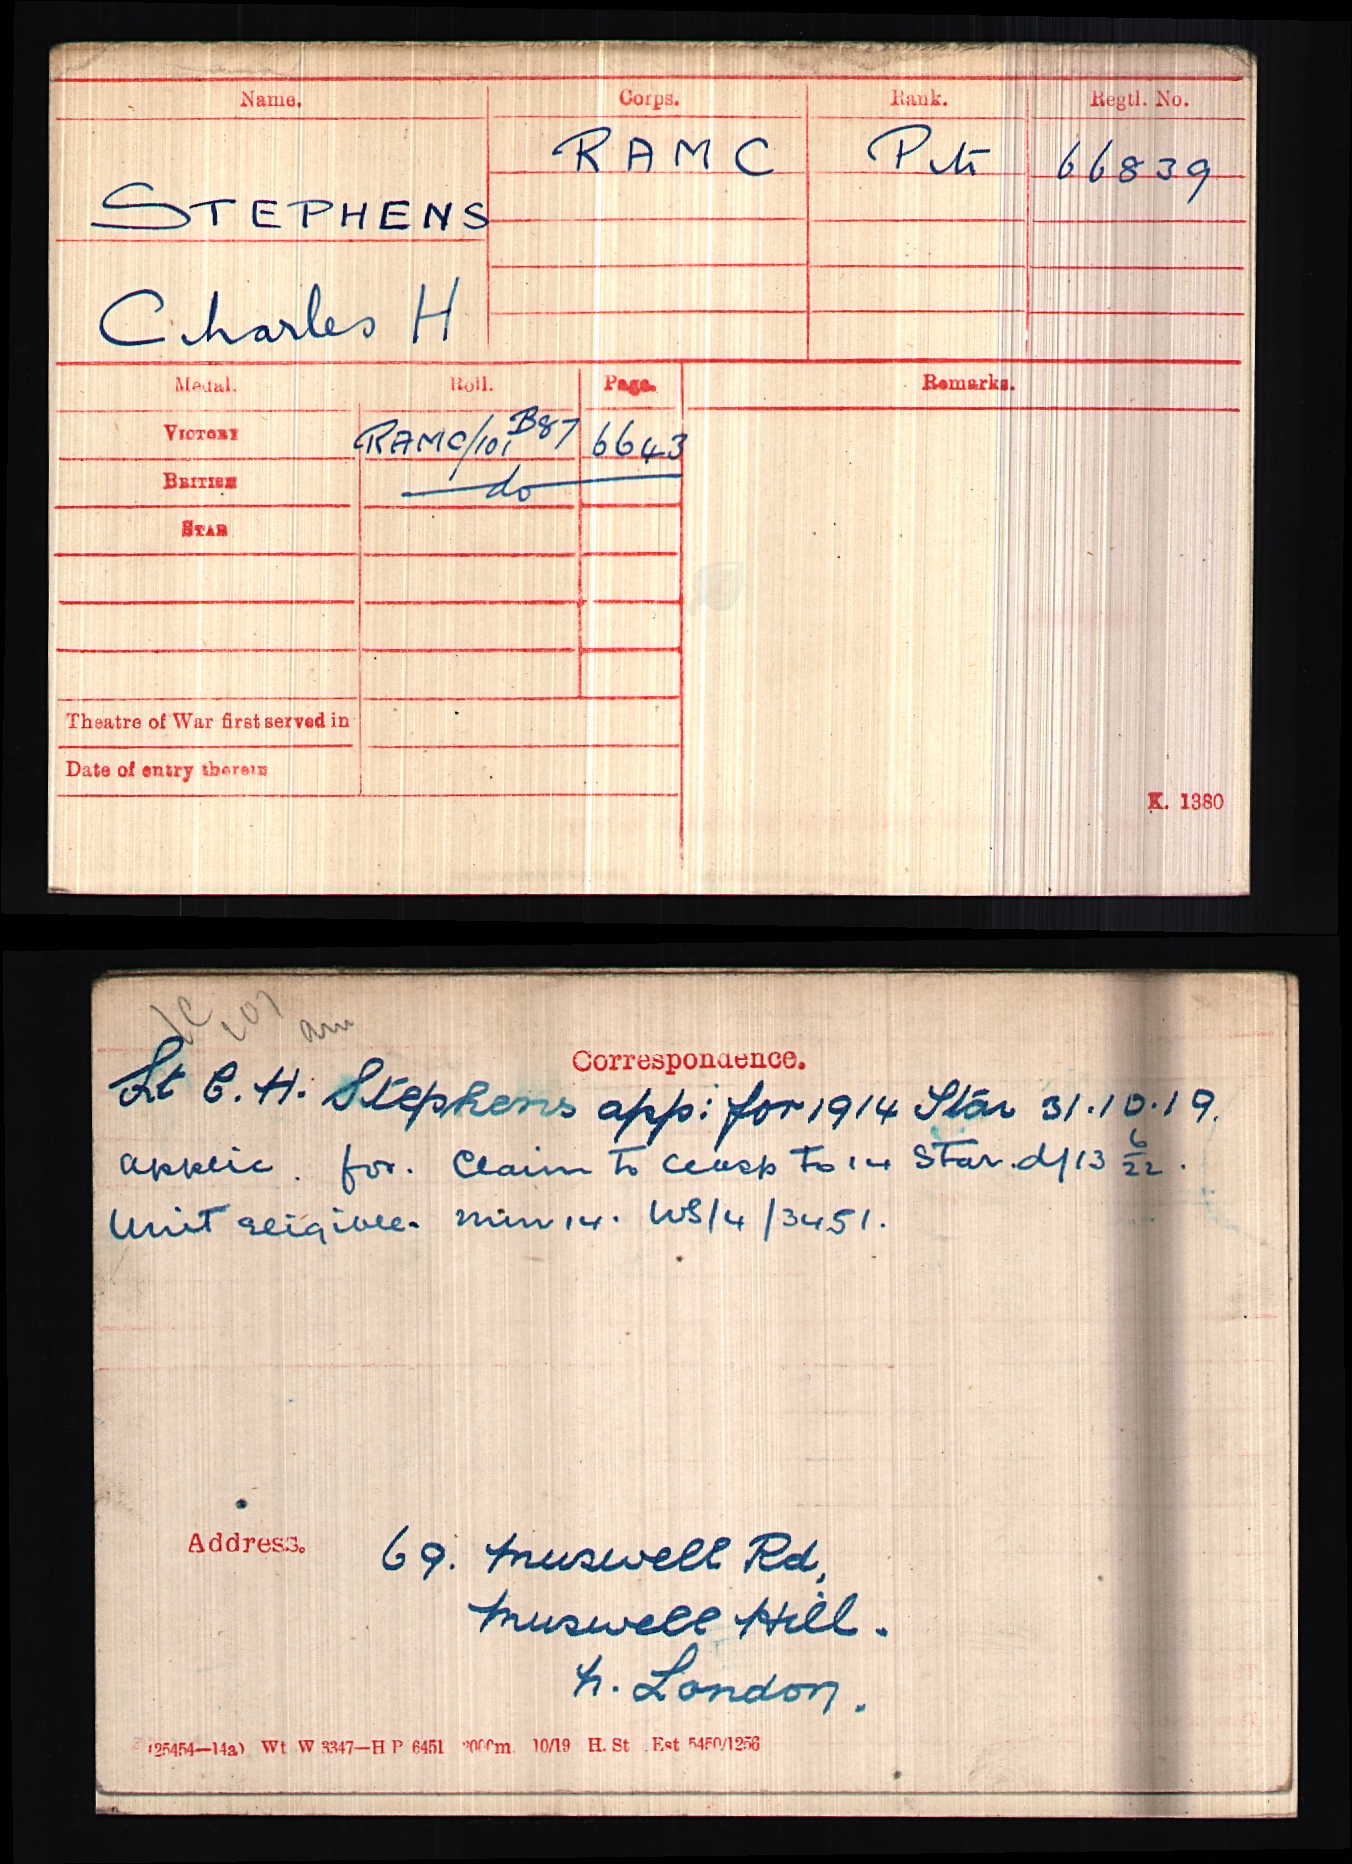 Name. Corps. Rank. Regtl. No.
RAMC Pte 66839
STEPHENS
Charles H
Medal. Roll. Page. Remarks.
VICTORY RAMC/101 B87 6643
BRITISH do
STAR
Theatre of War first served in
Date of entry therein
K. 1380
Correspondence.
Lt C. H. Stephens app: for 1914 Star 31.10.19.
applic. for. Claim to clasp to 14 Star. d/13 6/22.
Unit eligible. min 14. WS/4/3451.
Address. 69. Muswell Rd,
Muswell Hill.
N. London.
(25454—14a) Wt W 3347—H P 6451 10/19 H. St Est 5450/1256